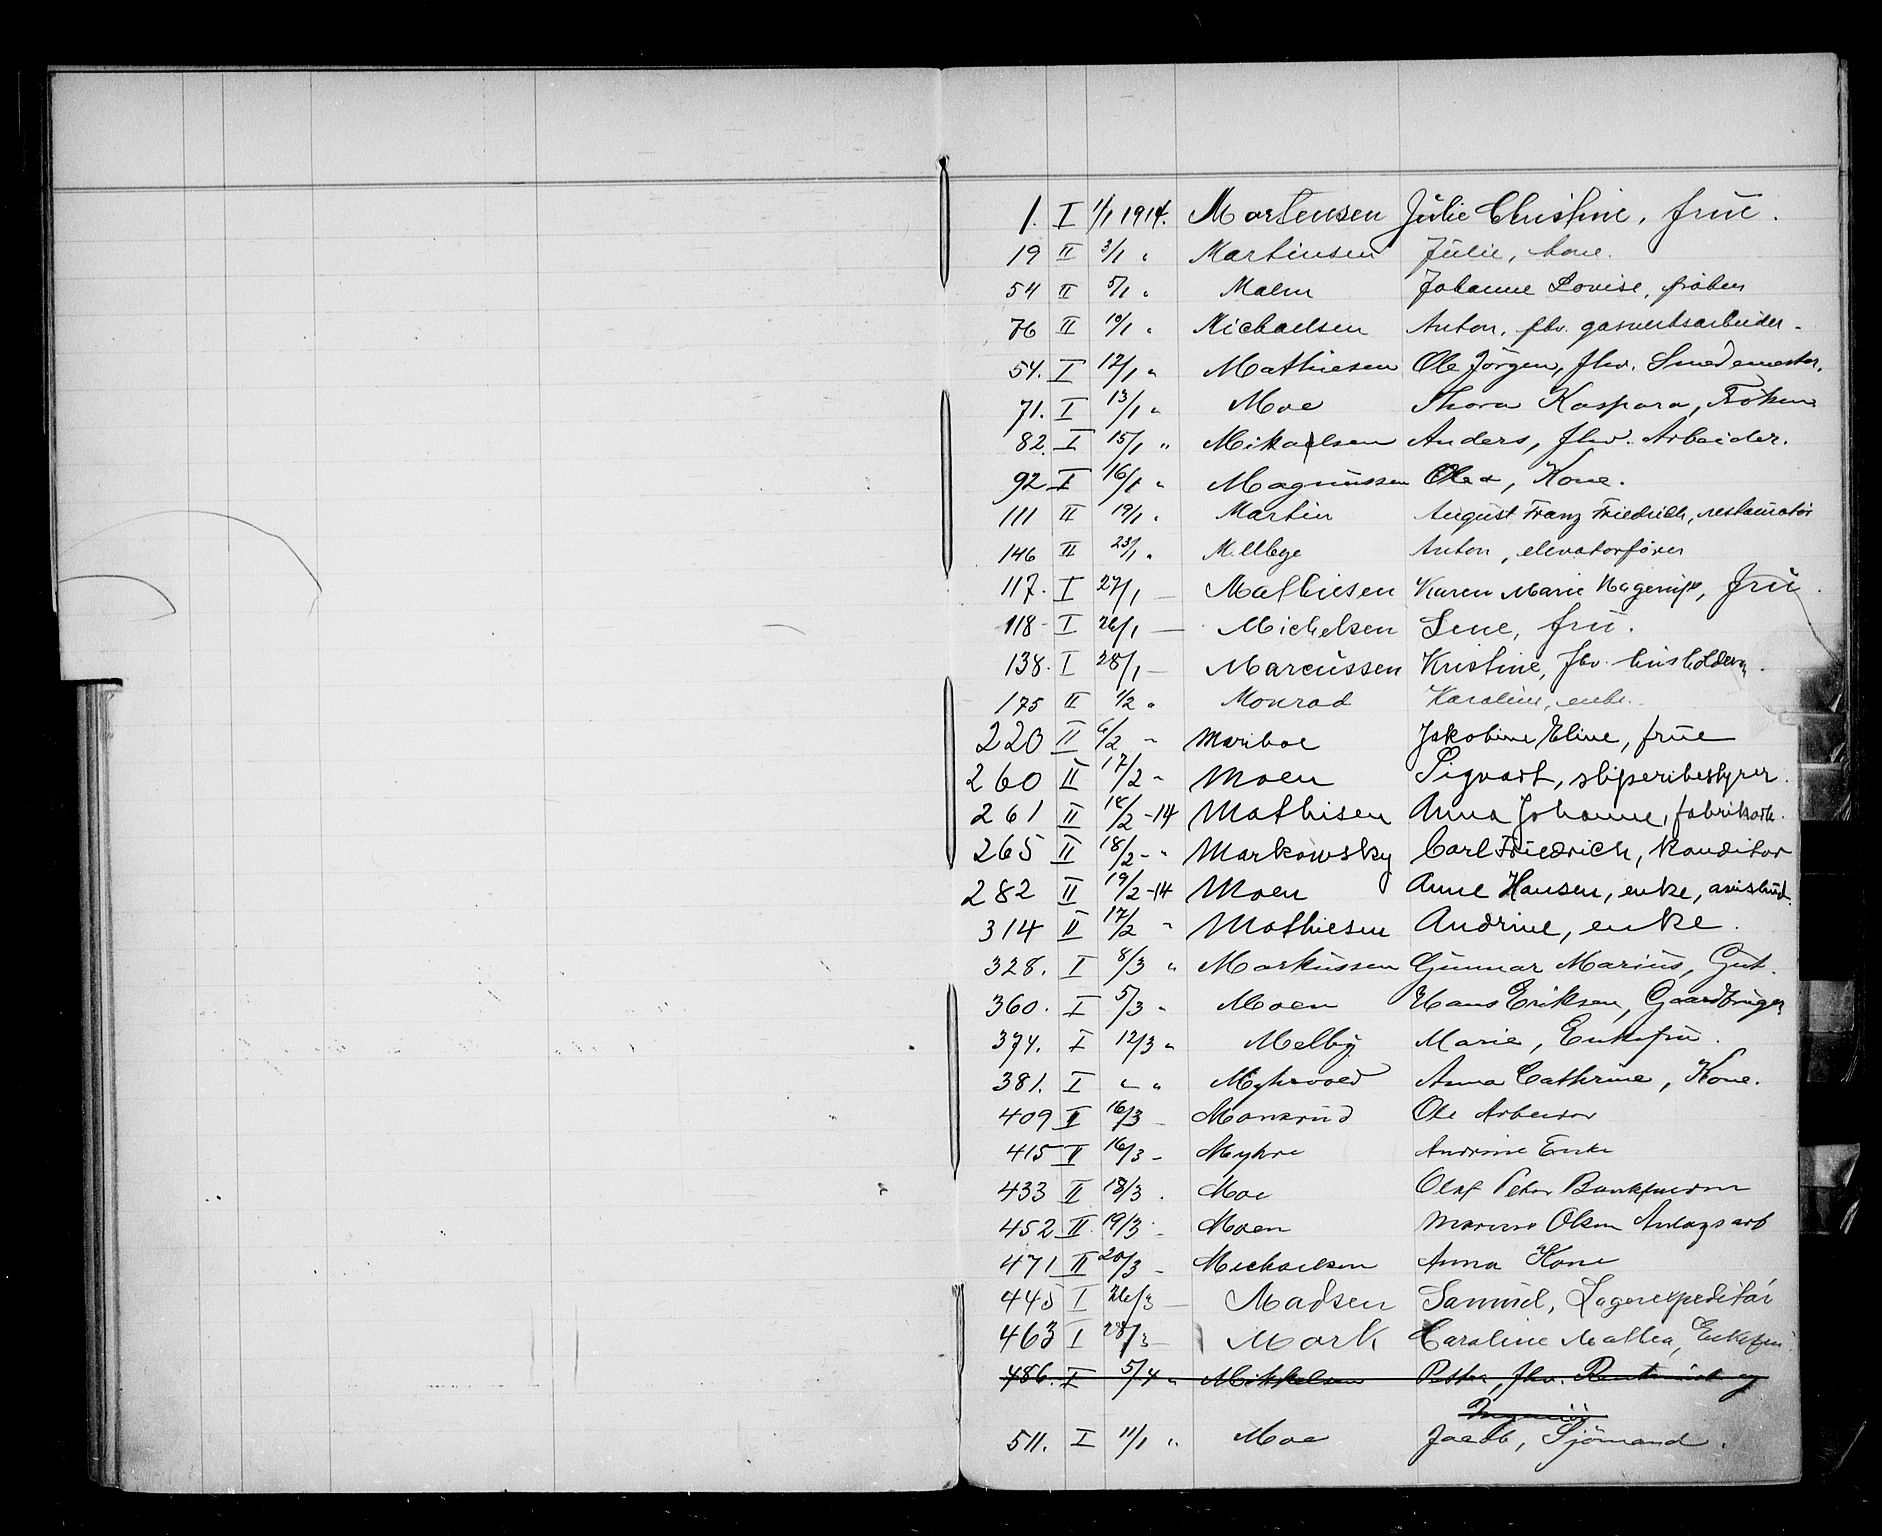 1. I 1/1 1914. Mortensen Julie Christine, frue.
19 II 3/1 " Martinsen Julie, kone.
54 II 5/1 " Malm Johanne Lovise, frøken
76 II 10/1 " Michaelsen Anton, fhv. gasverksarbeider.
54. I 12/1 " Mathiesen Ole Jörgen, fhv. Smedemester.
71. I 13/1 " Moe Thora Kaspara, Fröken
82. I 15/1 " Mikaelsen Anders, fhv. Arbeider.
92 I 16/1 " Magnussen Olea, Kone.
111 II 19/1 " Martin August Franz Friedrich, restauratør
146 II 23/1 " Mellbye Anton, elevatorfører
117. I 27/1 — Mathiesen Karen Marie Hagerup, fru.
118 I 26/1 — Michelsen Lene, fru.
138. I 28/1 — Marcussen Kristine, fhv. husholderske.
175 II 1/2 " Monrad Karoline, enke.
220 II 6/2 " Mariboe Jakobine Eline, frue
260 II 17/2 " Moen Sigvart, sliperibestyrer.
261 II 18/2 -14 Mathisen Anna Johanne, fabrikarb.
265 II 18/2 - " Markowsky Carl Friedrich, konditor
282 II 19/2 -14 Moen Anne Hansen, enke, avisbud.
314 II 17/2 " Mathiesen Andrine, enke.
328. I 8/3 " Markussen Gunnar Marius, Gut.
360. I 5/3 " Moen Hans Eriksen, Gaardbruger
374. I 12/3 " Melby Marie, Enkefru.
381. I " " Myhrvold Anna Cathrine, Kone.
409 II 16/3 - Monsrud Ole Arbeider
415 II 16/3 - Myhre Andrine Enke
433 II 18/3 . Moe Olaf Peter
452 II 19/3 - Moen Olsen Anlægsarb
471 II 20/3 - Michaelsen Anna Kone
445 I 26/3 — Madsen Samuel, Lagerexpeditør
463 I 28/3 — Mork Caroline Mathea, Enkefru
486. I 5/4 " Mikkelsen Petter, fhv. og
Ingeniör
511. I 11/1 " Moe Jacob, Sjömand.